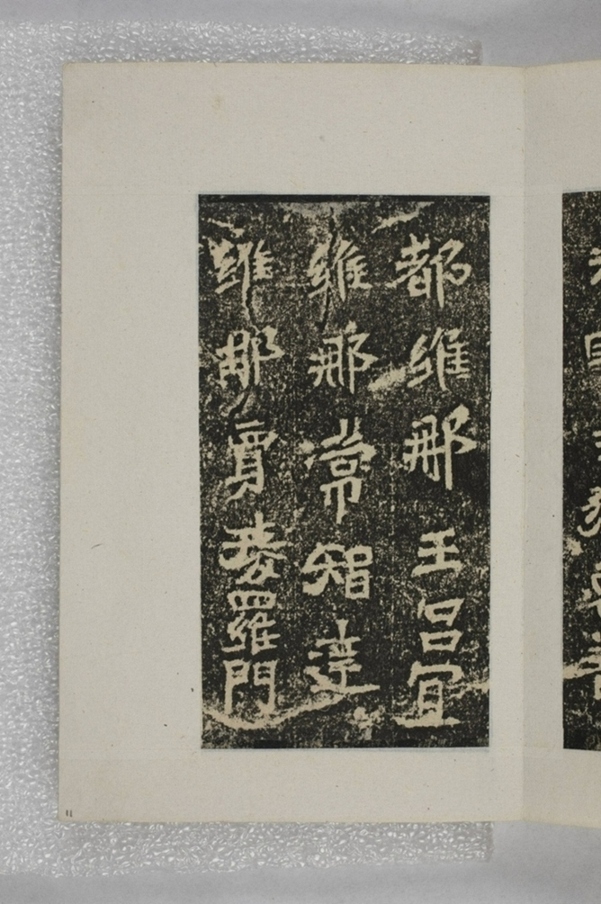 都維那王呂宜
維那常智達
維那賈婆羅門
11